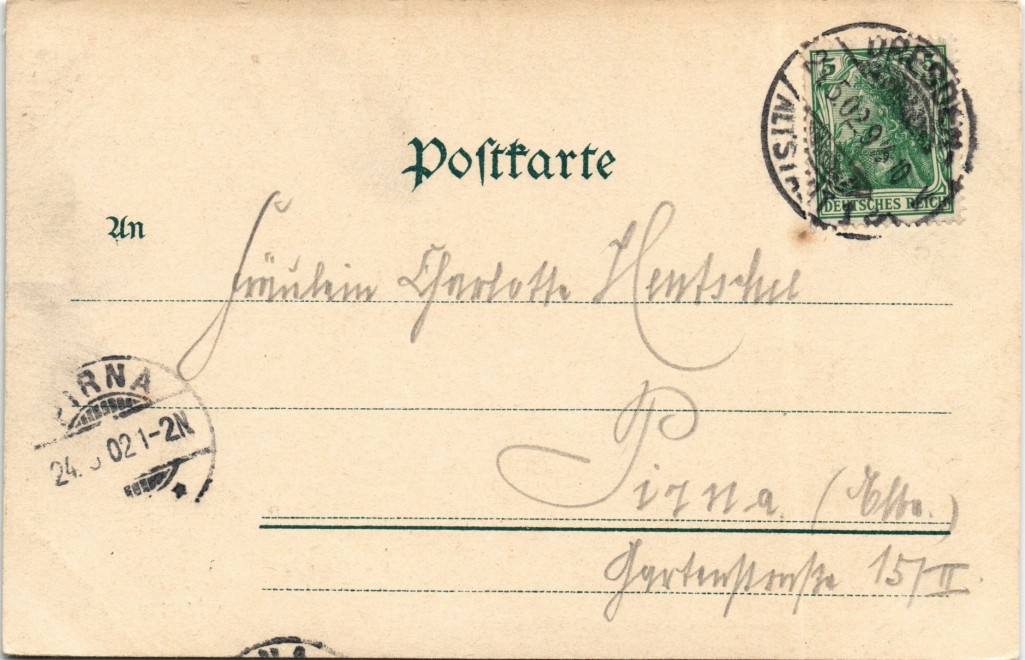 Postkarte
DRESDEN-
ALTST.
5.02.9
5
DEUTSCHES REICH
An
Fräulein Charlotte Hentschel
PIRNA
24. 5 02 1-2N
Pirna. (Elbe.)
Gartenstraße 15/II
NA